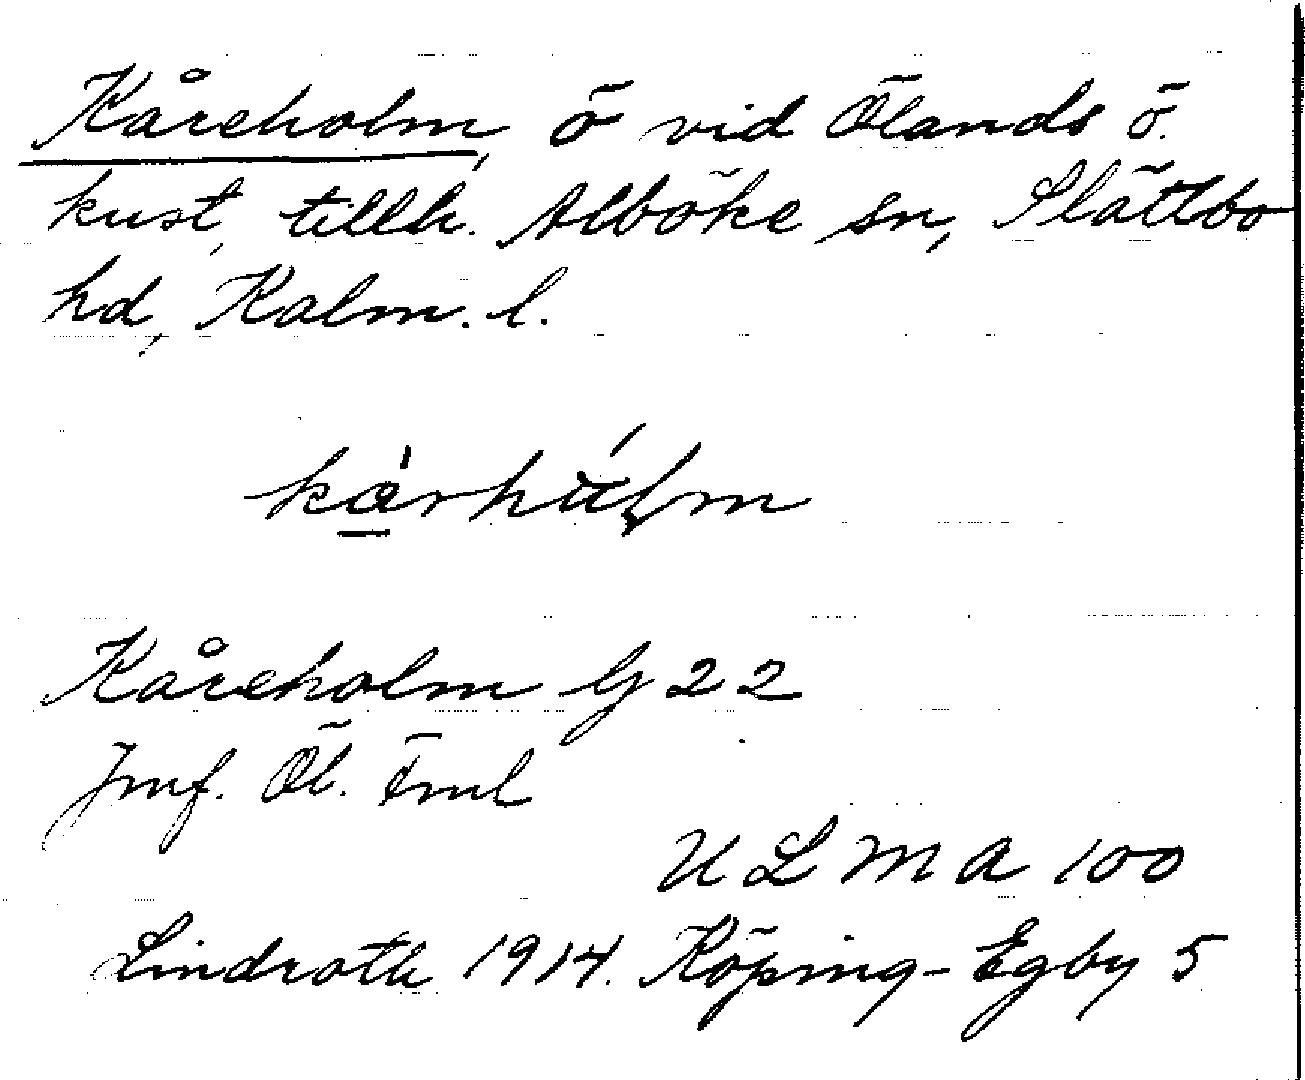 Kåreholm, ö vid Ölands ö.
kust, tillh. Alböke sn, Slättbo
hd, Kalm. l.
Kåreholm G 22
Jmf. Öl. Fml
U L M A 100
Lindroth 1914. Köping-Egby 5